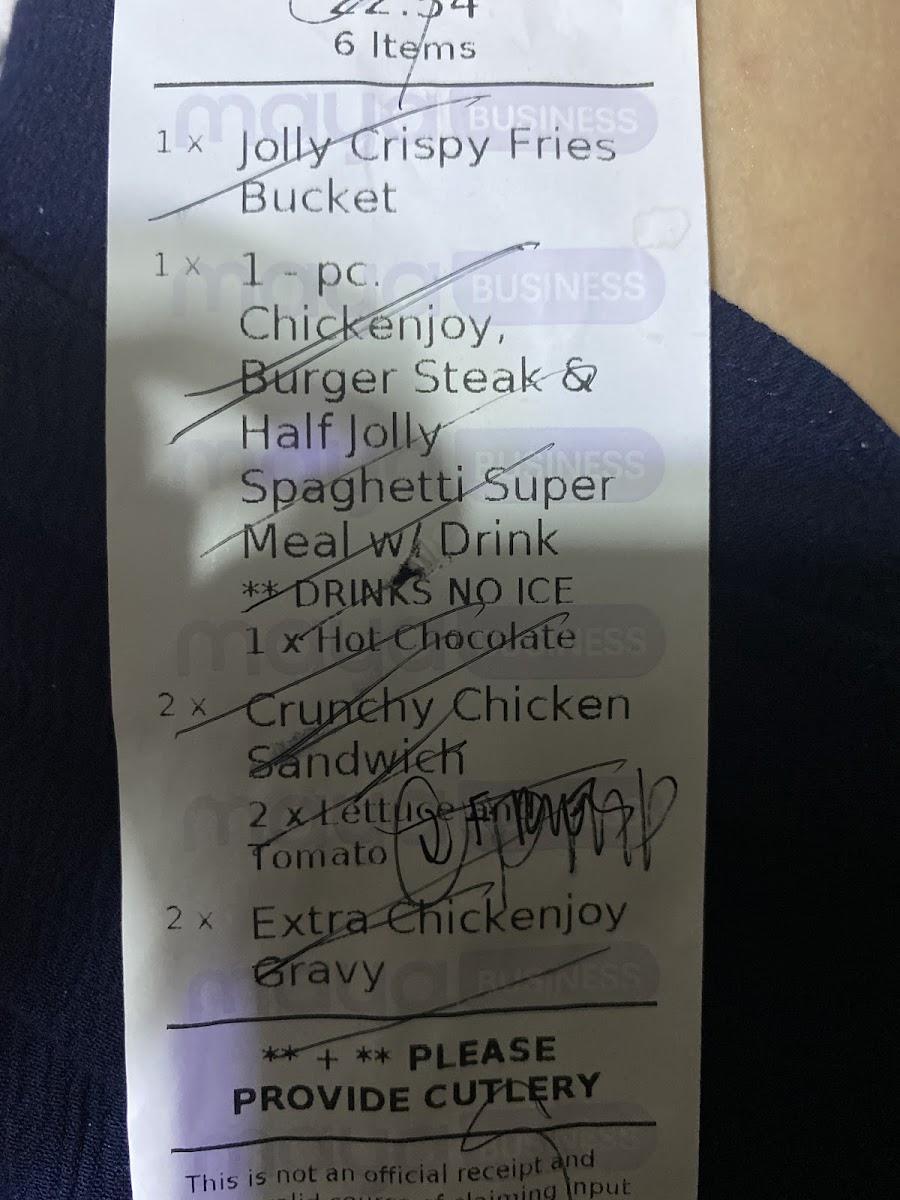 6 Items
maya BUSINESS
1 x Jolly Crispy Fries
Bucket
maya BUSINESS
1 x 1 - pc.
Chickenjoy,
Burger Steak &
Half Jolly
maya BUSINESS
Spaghetti Super
Meal w/ Drink
** DRINKS NO ICE
maya BUSINESS
1 x Hot Chocolate
2 x Crunchy Chicken
Sandwich
2 x Lettuce
Tomato
2 x Extra Chickenjoy
Gravy
maya BUSINESS
** + ** PLEASE
PROVIDE CUTLERY
This is not an official receipt and
claiming input